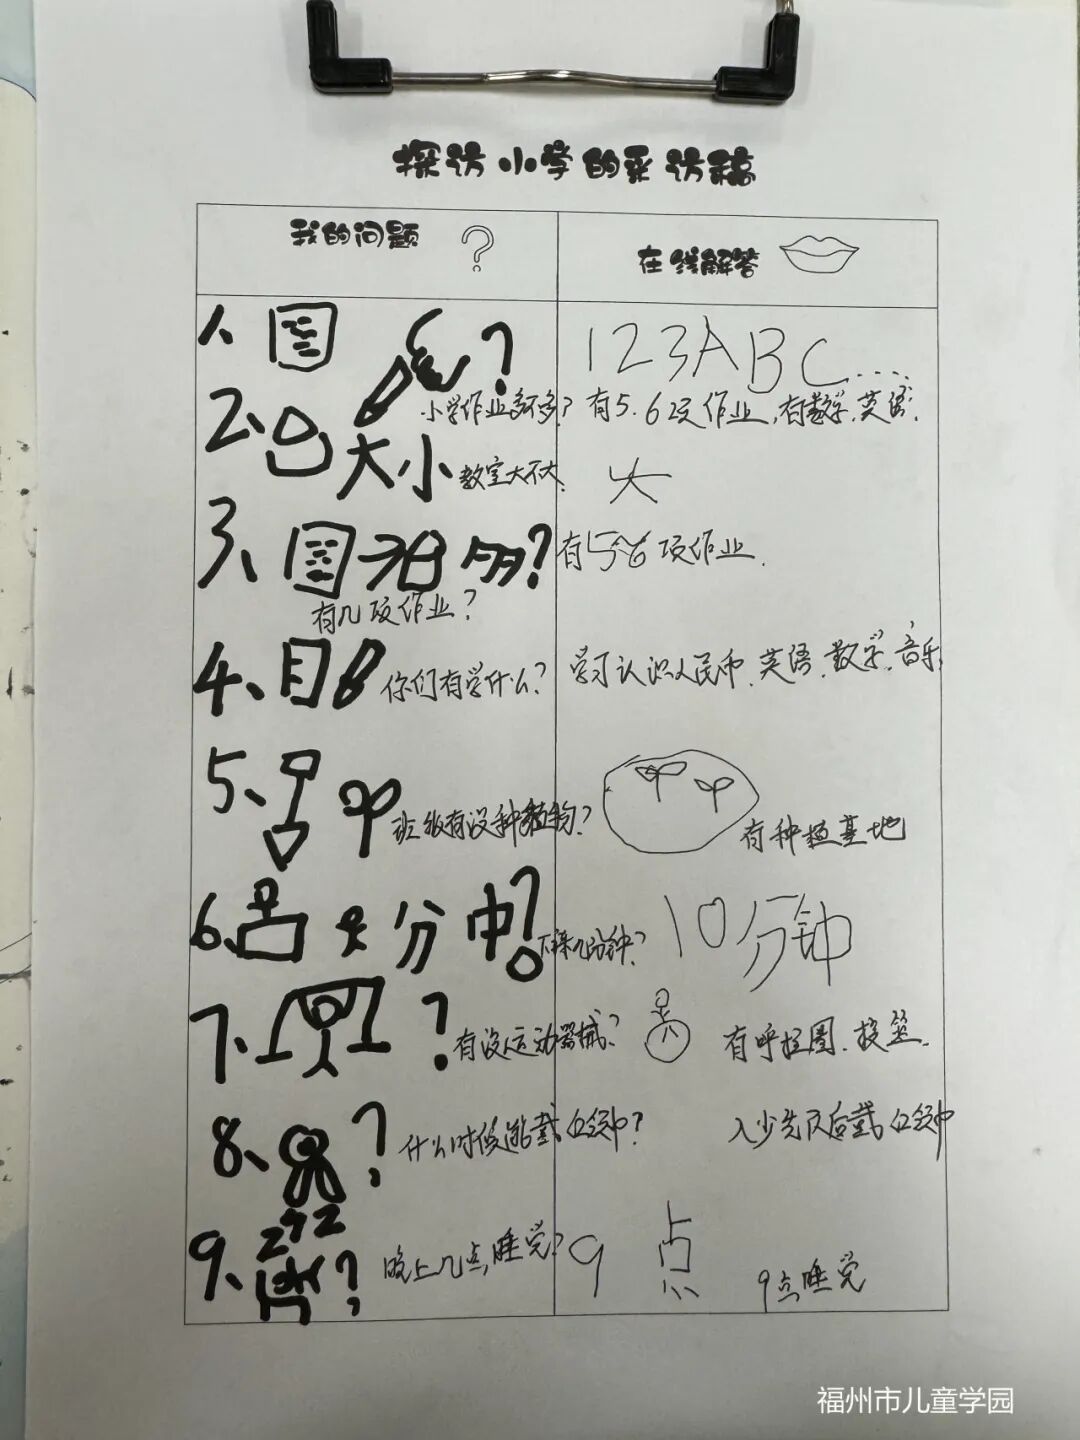 探访小学的采访稿
我的问题 ?
在线解答
1、 ?
123ABC....
小学作业多不多? 有5.6项作业,有数学.英语.
2、 大小 教室大不大. 大
3、 多? 有56项作业.
有几项作业?
4、 你们有学什么? 学习认识人民币.英语.数学.音乐.
5、 班级有没种植物?
有种植基地
6、 分中? 下课几分钟? 10分钟
7、 ? 有没运动器械? 有呼拉圈.
8、 ? 什么时候能戴红领巾? 入少先队后戴红领巾
9、 ? 晚上几点睡觉? 9点
9点睡觉
福州市儿童学园